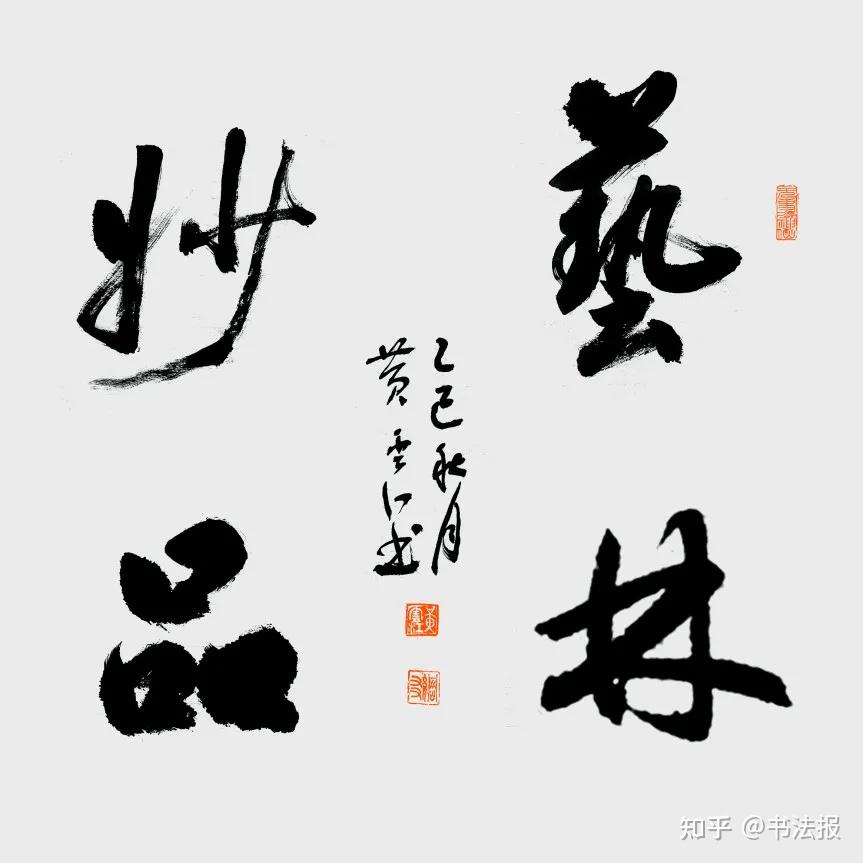 藝林
妙品
乙巳秋月
黄雲江书
知乎 @书法报